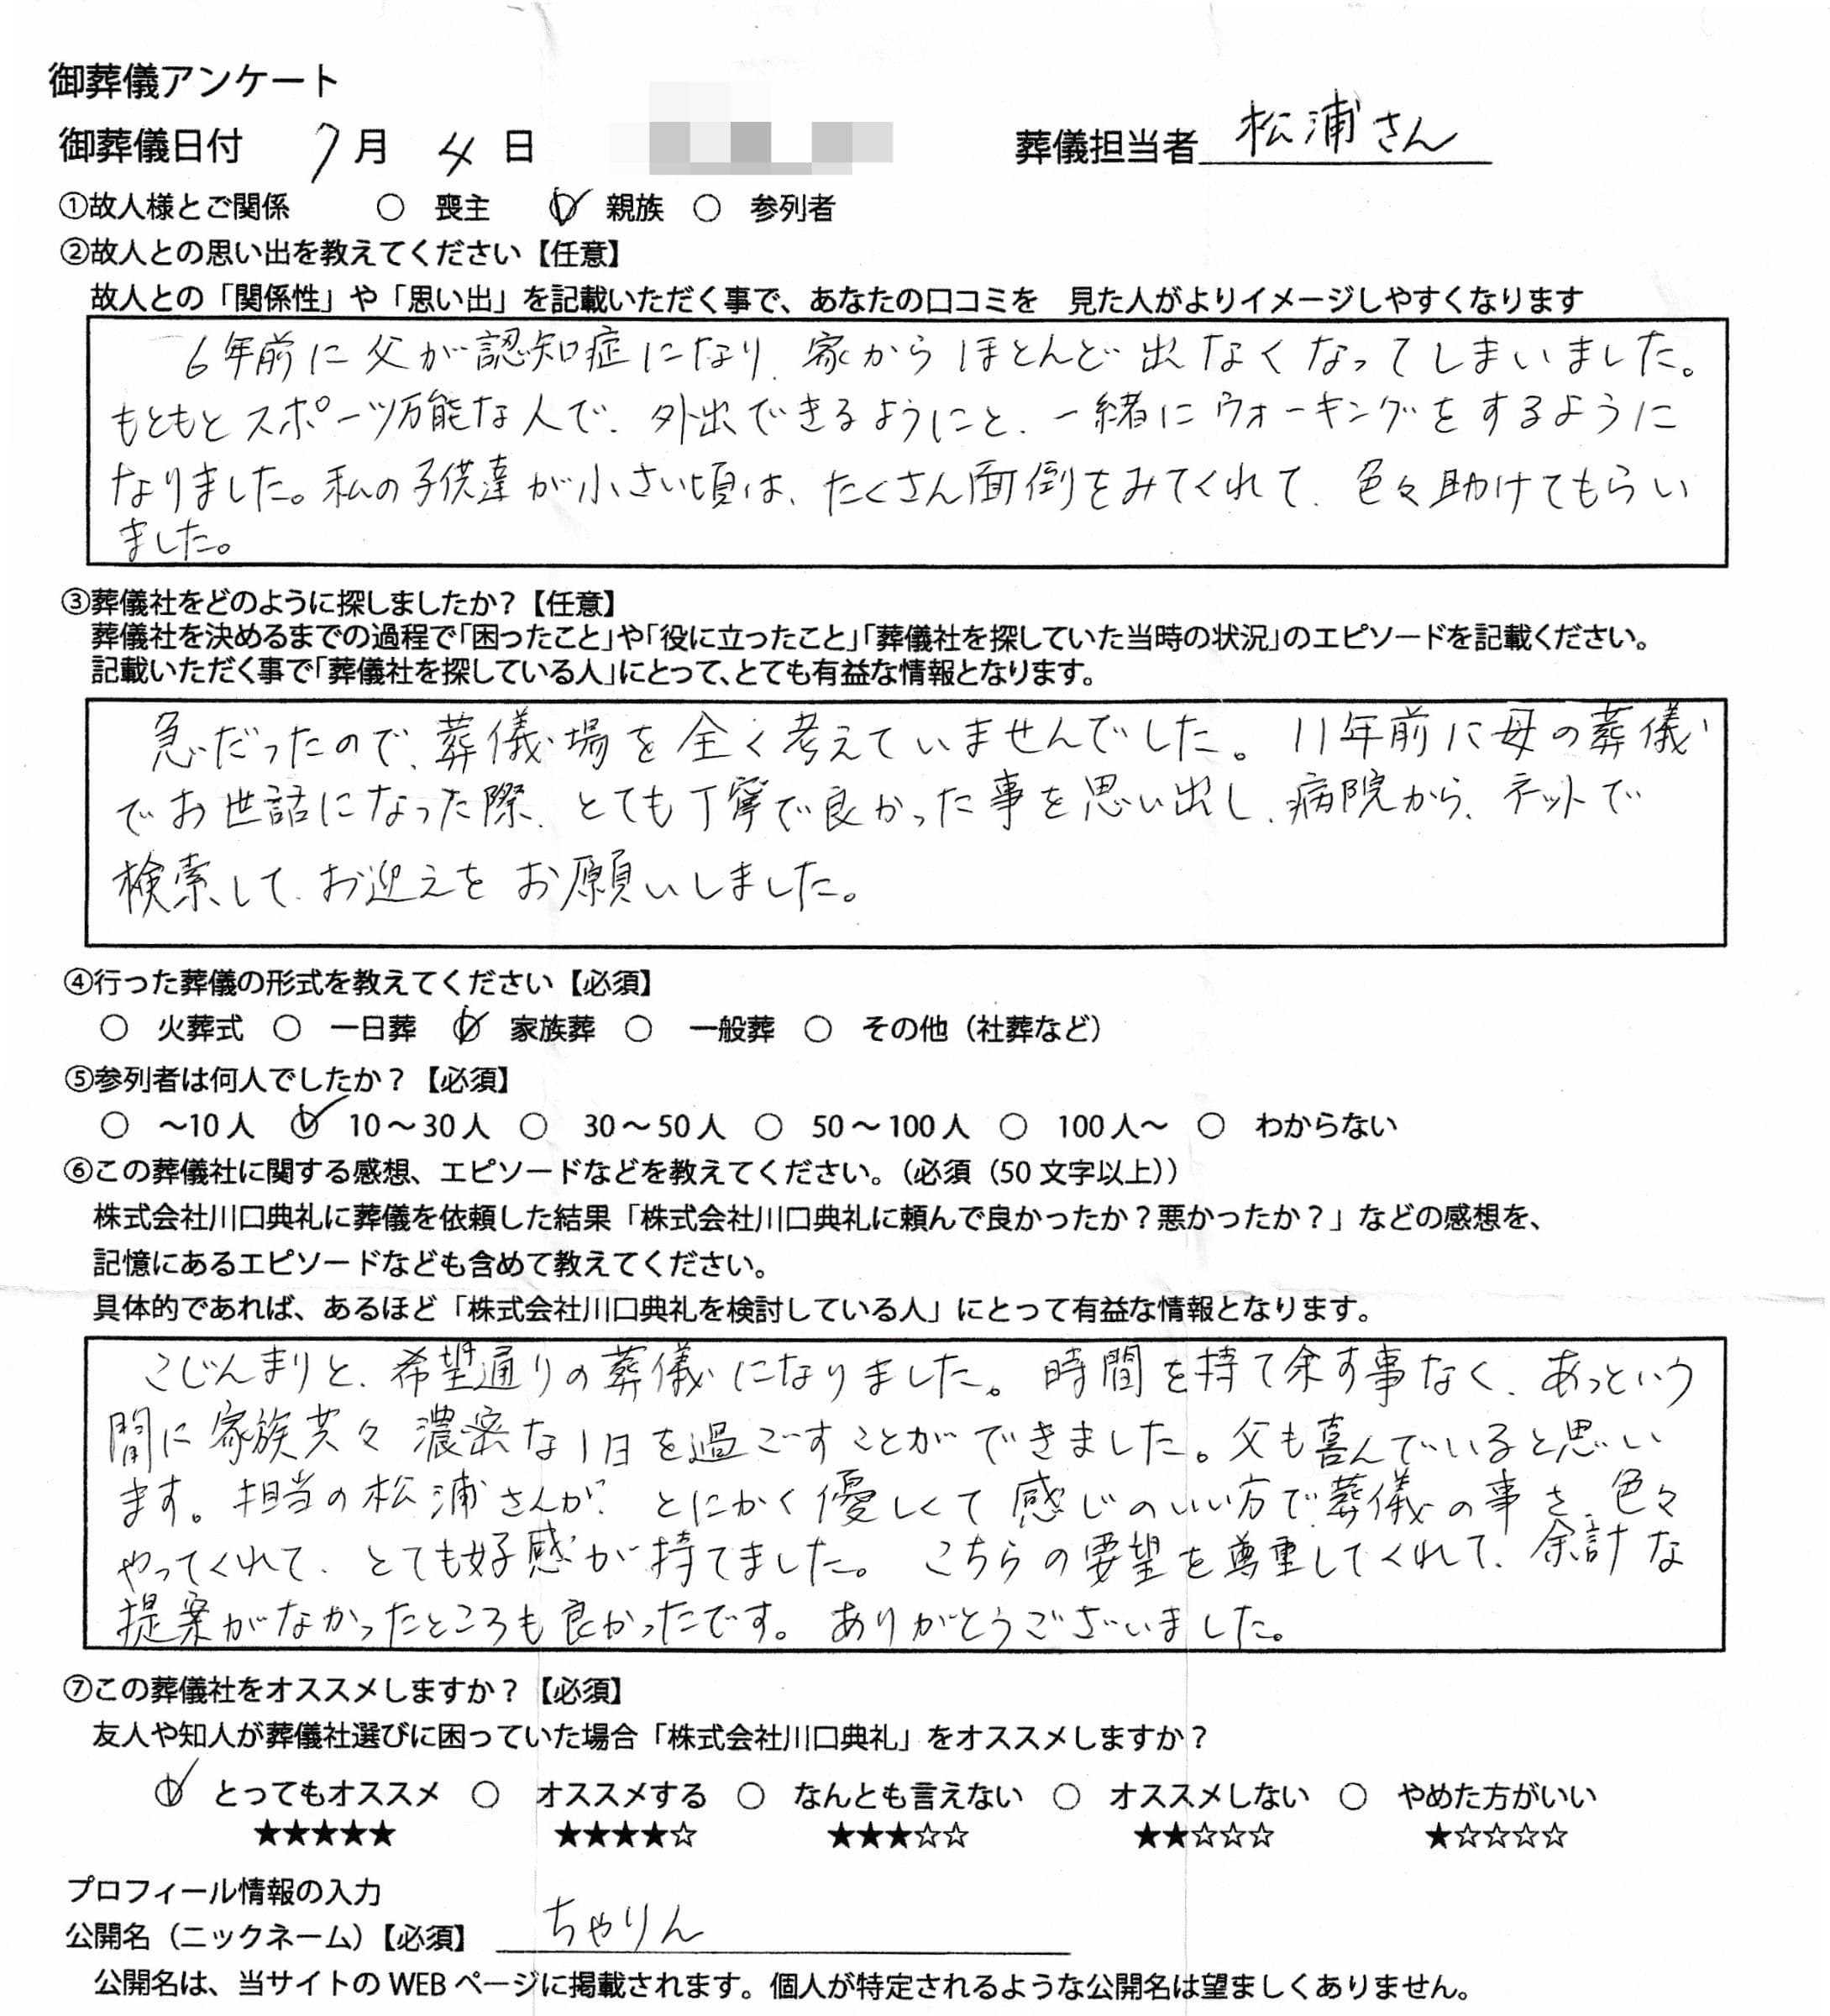 御葬儀アンケート
御葬儀日付 7月 4日 葬儀担当者 松浦さん
①故人様とご関係 ○ 喪主 ○ 親族 ○ 参列者
②故人との思い出を教えてください【任意】
故人との「関係性」や「思い出」を記載いただく事で、あなたの口コミを 見た人がよりイメージしやすくなります
6年前に父が認知症になり、家からほとんど出なくなってしまいました。
もともとスポーツ万能な人で、外出できるようにと、一緒にウォーキングをするように
なりました。私の子供達が小さい頃は、たくさん面倒をみてくれて、色々助けてもらい
ました。
③葬儀社をどのように探しましたか?【任意】
葬儀社を決めるまでの過程で「困ったこと」や「役に立ったこと」「葬儀社を探していた当時の状況」のエピソードを記載ください。
記載いただく事で「葬儀社を探している人」にとって、とても有益な情報となります。
急だったので、葬儀場を全く考えていませんでした。11年前に母の葬儀
でお世話になった際、とても丁寧で良かった事を思い出し、病院から、ネットで
検索して、お迎えをお願いしました。
④行った葬儀の形式を教えてください【必須】
○ 火葬式 ○ 一日葬 ○ 家族葬 ○ 一般葬 ○ その他（社葬など）
⑤参列者は何人でしたか？【必須】
○ ～10人 ○ 10～30人 ○ 30～50人 ○ 50～100人 ○ 100人～ ○ わからない
⑥この葬儀社に関する感想、エピソードなどを教えてください。（必須（50文字以上））
株式会社川口典礼に葬儀を依頼した結果「株式会社川口典礼に頼んで良かったか？悪かったか？」などの感想を、
記憶にあるエピソードなども含めて教えてください。
具体的であれば、あるほど「株式会社川口典礼を検討している人」にとって有益な情報となります。
こじんまりと、希望通りの葬儀になりました。時間を持て余す事なく、あっという
間に家族共々濃密な1日を過ごすことができました。父も喜んでいると思い
ます。担当の松浦さんが、とにかく優しくて感じのいい方で葬儀の事を、色々
やってくれて、とても好感が持てました。こちらの要望を尊重してくれて、余計な
提案がなかったところも良かったです。ありがとうございました。
⑦この葬儀社をオススメしますか？【必須】
友人や知人が葬儀社選びに困っていた場合「株式会社川口典礼」をオススメしますか？
○ とってもオススメ ○ オススメする ○ なんとも言えない ○ オススメしない ○ やめた方がいい
★★★★★ ★★★★☆ ★★★☆☆ ★★☆☆☆ ★☆☆☆☆
プロフィール情報の入力
公開名（ニックネーム）【必須】 ちゃりん
公開名は、当サイトのWEBページに掲載されます。個人が特定されるような公開名は望ましくありません。